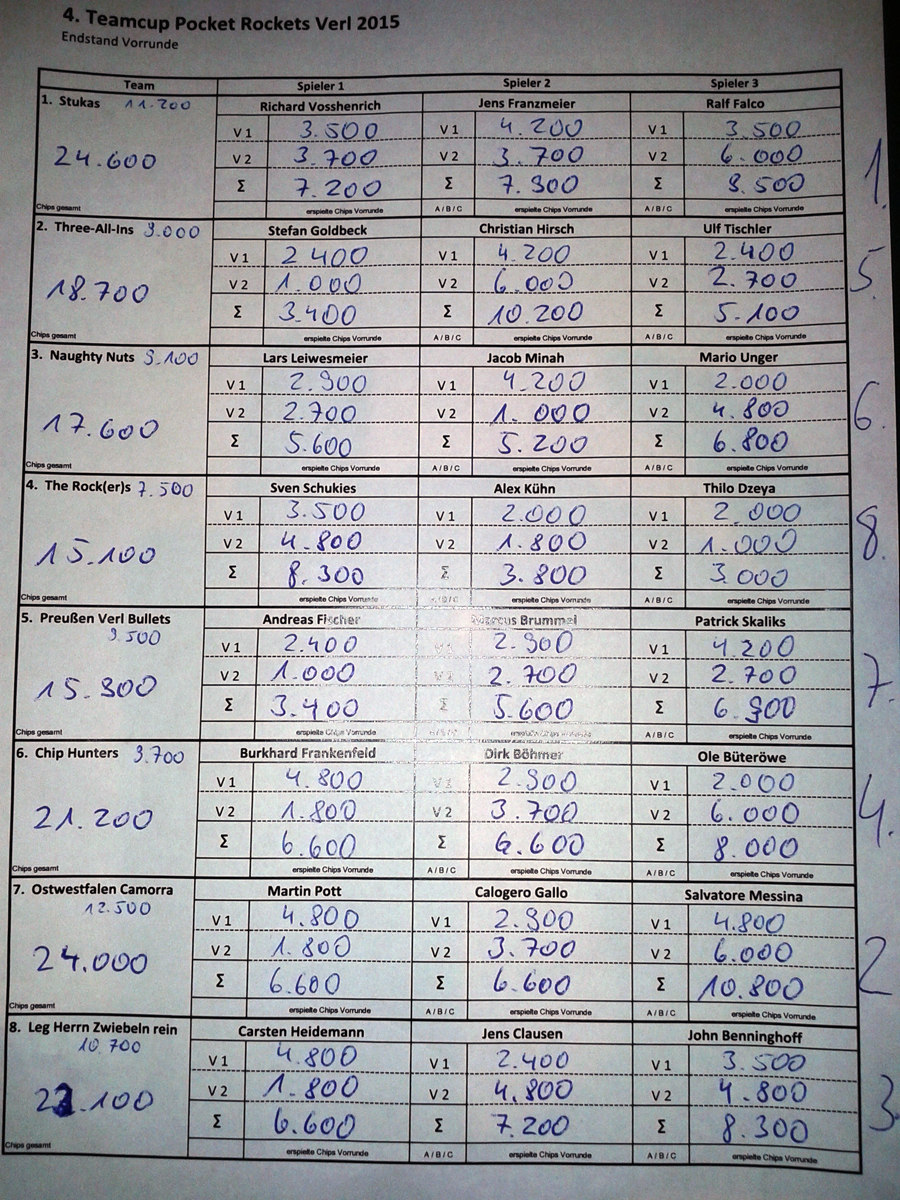 4. Teamcup Pocket Rockets Verl 2015
Endstand Vorrunde
Team Spieler 1 Spieler 2 Spieler 3
1. Stukas 11.200 Richard Vosshenrich Jens Franzmeier Ralf Falco
V 1 3.500 V 1 4.200 V 1 3.500
24.600 V 2 3.700 V 2 3.700 V 2 6.000 1.
Σ 7.200 Σ 7.900 Σ 9.500
Chips gesamt erspielte Chips Vorrunde A / B / C erspielte Chips Vorrunde A / B / C erspielte Chips Vorrunde
2. Three-All-Ins 9.000 Stefan Goldbeck Christian Hirsch Ulf Tischler
V 1 2400 V 1 4.200 V 1 2.400
18.700 V 2 1.000 V 2 6.000 V 2 2.700 5.
Σ 3.400 Σ 10.200 Σ 5.100
Chips gesamt erspielte Chips Vorrunde A / B / C erspielte Chips Vorrunde A / B / C erspielte Chips Vorrunde
3. Naughty Nuts 9.100 Lars Leiwesmeier Jacob Minah Mario Unger
V 1 2.900 V 1 4.200 V 1 2.000
17.600 V 2 2.700 V 2 1.000 V 2 4.800 6.
Σ 5.600 Σ 5.200 Σ 6.800
Chips gesamt erspielte Chips Vorrunde A / B / C erspielte Chips Vorrunde A / B / C erspielte Chips Vorrunde
4. The Rock(er)s 7.500 Sven Schukies Alex Kühn Thilo Dzeya
V 1 3.500 V 1 2.000 V 1 2.000
15.100 V 2 4.800 V 2 1.800 V 2 1.000 8.
Σ 8.300 Σ 3.800 Σ 3.000
Chips gesamt erspielte Chips Vorrunde A / B / C erspielte Chips Vorrunde A / B / C erspielte Chips Vorrunde
5. Preußen Verl Bullets Andreas Fischer Marcus Brummel Patrick Skaliks
9.500 V 1 2.400 V 1 2.900 V 1 4.200
15.900 V 2 1.000 V 2 2.700 V 2 2.700 7.
Σ 3.400 Σ 5.600 Σ 6.900
Chips gesamt erspielte Chips Vorrunde A / B / C erspielte Chips Vorrunde A / B / C erspielte Chips Vorrunde
6. Chip Hunters 9.700 Burkhard Frankenfeld Dirk Böhmer Ole Büteröwe
V 1 4.800 V 1 2.900 V 1 2.000
21.200 V 2 1.800 V 2 3.700 V 2 6.000 4.
Σ 6.600 Σ 6.600 Σ 8.000
Chips gesamt erspielte Chips Vorrunde A / B / C erspielte Chips Vorrunde A / B / C erspielte Chips Vorrunde
7. Ostwestfalen Camorra Martin Pott Calogero Gallo Salvatore Messina
12.500 V 1 4.800 V 1 2.900 V 1 4.800
24.000 V 2 1.800 V 2 3.700 V 2 6.000 2
Σ 6.600 Σ 6.600 Σ 10.800
Chips gesamt erspielte Chips Vorrunde A / B / C erspielte Chips Vorrunde A / B / C erspielte Chips Vorrunde
8. Leg Herrn Zwiebeln rein Carsten Heidemann Jens Clausen John Benninghoff
10.700 V 1 4.800 V 1 2.400 V 1 3.500
22.100 V 2 1.800 V 2 4.800 V 2 4.800 3.
Σ 6.600 Σ 7.200 Σ 8.300
Chips gesamt erspielte Chips Vorrunde A / B / C erspielte Chips Vorrunde A / B / C erspielte Chips Vorrunde